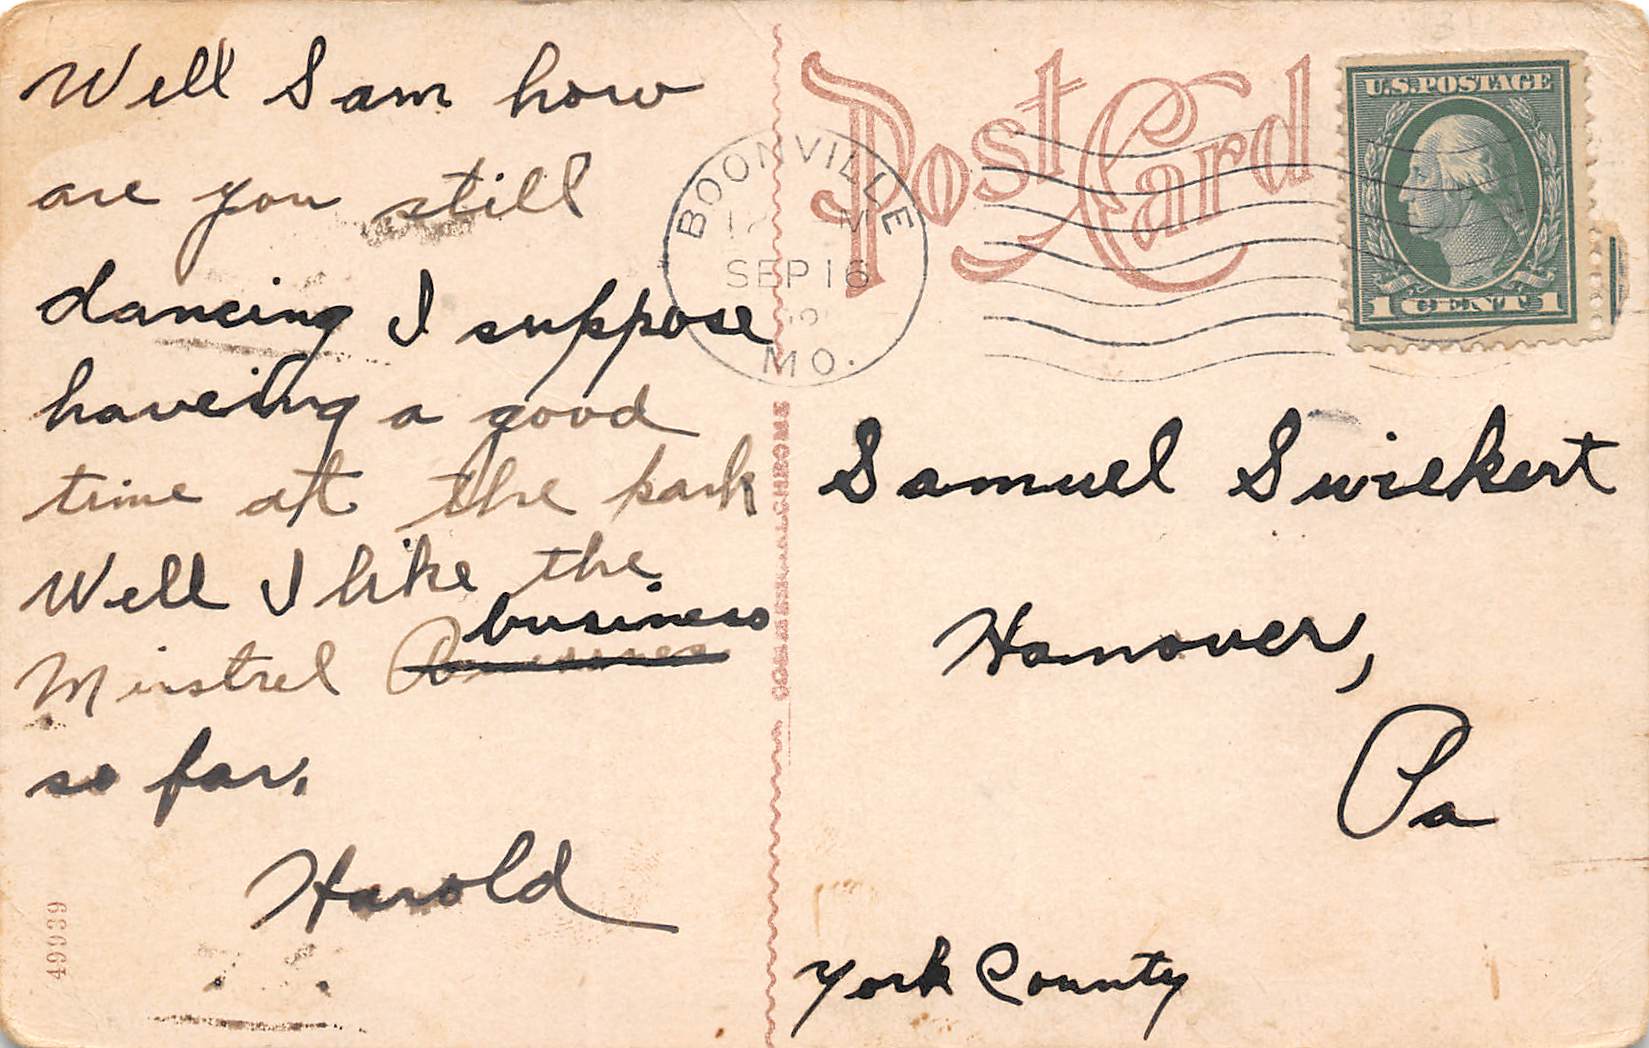 Well Sam how
are you still
dancing I suppose
haveing a good
time at the park
Well I like the
Minstrel business
so far.
Harold
49939
Post Card
BOONVILLE
SEP 16
MO.
U.S. POSTAGE
1 CENT 1
Samuel Swiekert
Hanover,
Pa
York County